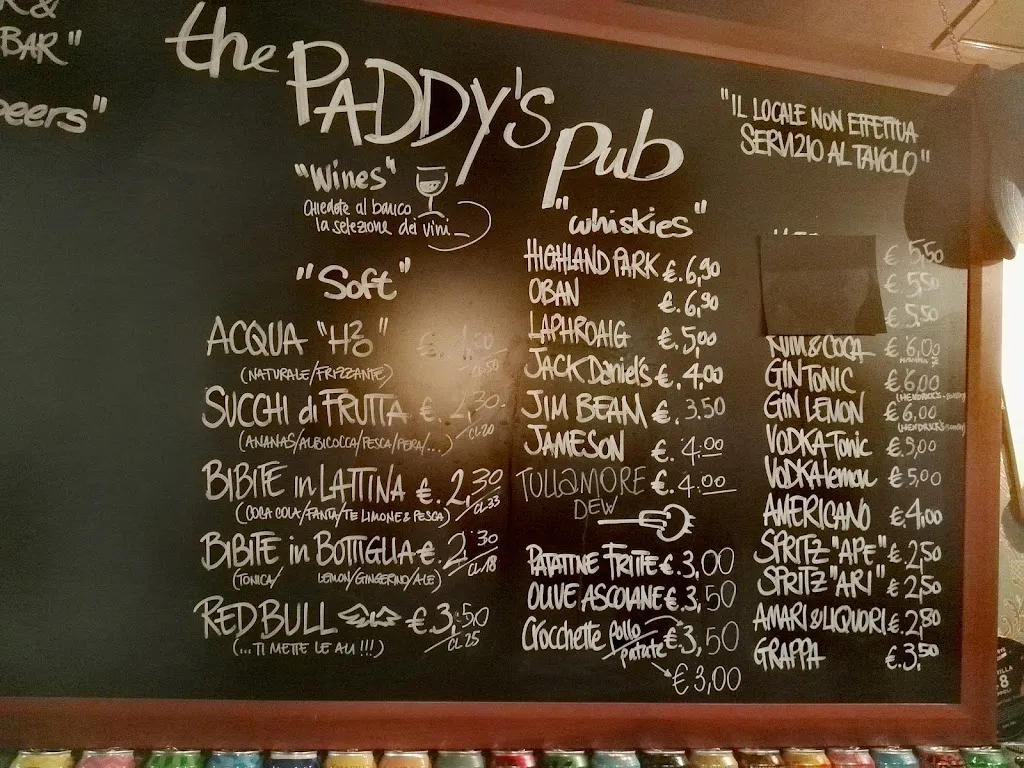 BAR"
beers"
the PADDY'S pub
"IL LOCALE NON EFFETTUA
SERVIZIO AL TAVOLO"
"Wines"
Chiedete al banco
la selezione dei vini
"Soft"
ACQUA "H2O" €.
(NATURALE/FRIZZANTE)
SUCCHI di FRUTTA €. 2,30
CL.20
(ANANAS/ALBICOCCA/PESCA/PERA/...)
BIBITE in LATTINA €. 2,30
CL.33
(COCA COLA/FANTA/TE LIMONE & PESCA)
BIBITE in BOTTIGLIA €. 2,30
CL.18
(TONICA/ LEMON/GINGERINO/ALE)
RED BULL €. 3,50
CL.25
(...TI METTE LE ALI!!!)
"whiskies"
HIGHLAND PARK €. 6,90
OBAN €. 6,90
LAPHROAIG €. 5,00
JACK Daniel's €. 4,00
JIM BEAM €. 3.50
JAMESON €. 4.00
TULLAMORE €. 4.00
DEW
PATATINE FRITTE €. 3,00
OLIVE ASCOLANE €. 3,50
Crocchette pollo €. 3,50
patate
€ 3,00
€ 5,50
€ 5,50
€ 5,50
RUM & COCA € 6,00
GIN TONIC € 6,00
(HENDRICK'S
GIN LEMON € 6,00
(HENDRICK'S
VODKA TONIC € 5,00
VODKA lemon € 5,00
AMERICANO €. 4,00
SPRITZ "APE" €. 2,50
SPRITZ "ARI" €. 2,50
AMARI & LIQUORI €. 2,80
GRAPPA €. 3,50